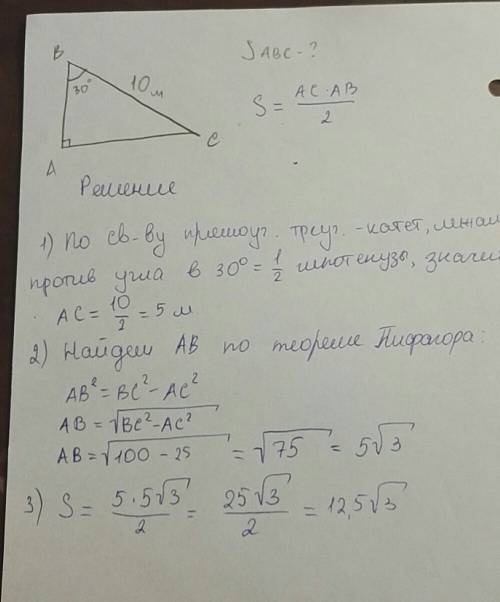 B
30°
10м
A
C
S ABC - ?
S = AC · AB / 2
Решение
1) По св-ву прямоуг. треуг. - катет, лежащ
против угла в 30° = 1/2 гипотенузы, значи
AC = 10/2 = 5 м
2) Найдем AB по теореме Пифагора:
AB² = BC² - AC²
AB = √BC² - AC²
AB = √100 - 25 = √75 = 5√3
3) S = 5·5√3/2 = 25√3/2 = 12,5√3